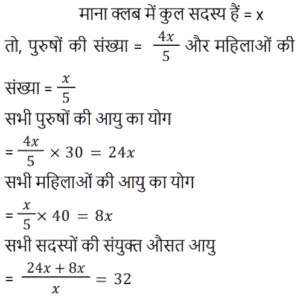 माना क्लब में कुल सदस्य हैं = x
तो, पुरुषों की संख्या = 4x/5 और महिलाओं की
संख्या = x/5
सभी पुरुषों की आयु का योग
= 4x/5 × 30 = 24x
सभी महिलाओं की आयु का योग
= x/5 × 40 = 8x
सभी सदस्यों की संयुक्त औसत आयु
= (24x + 8x)/x = 32